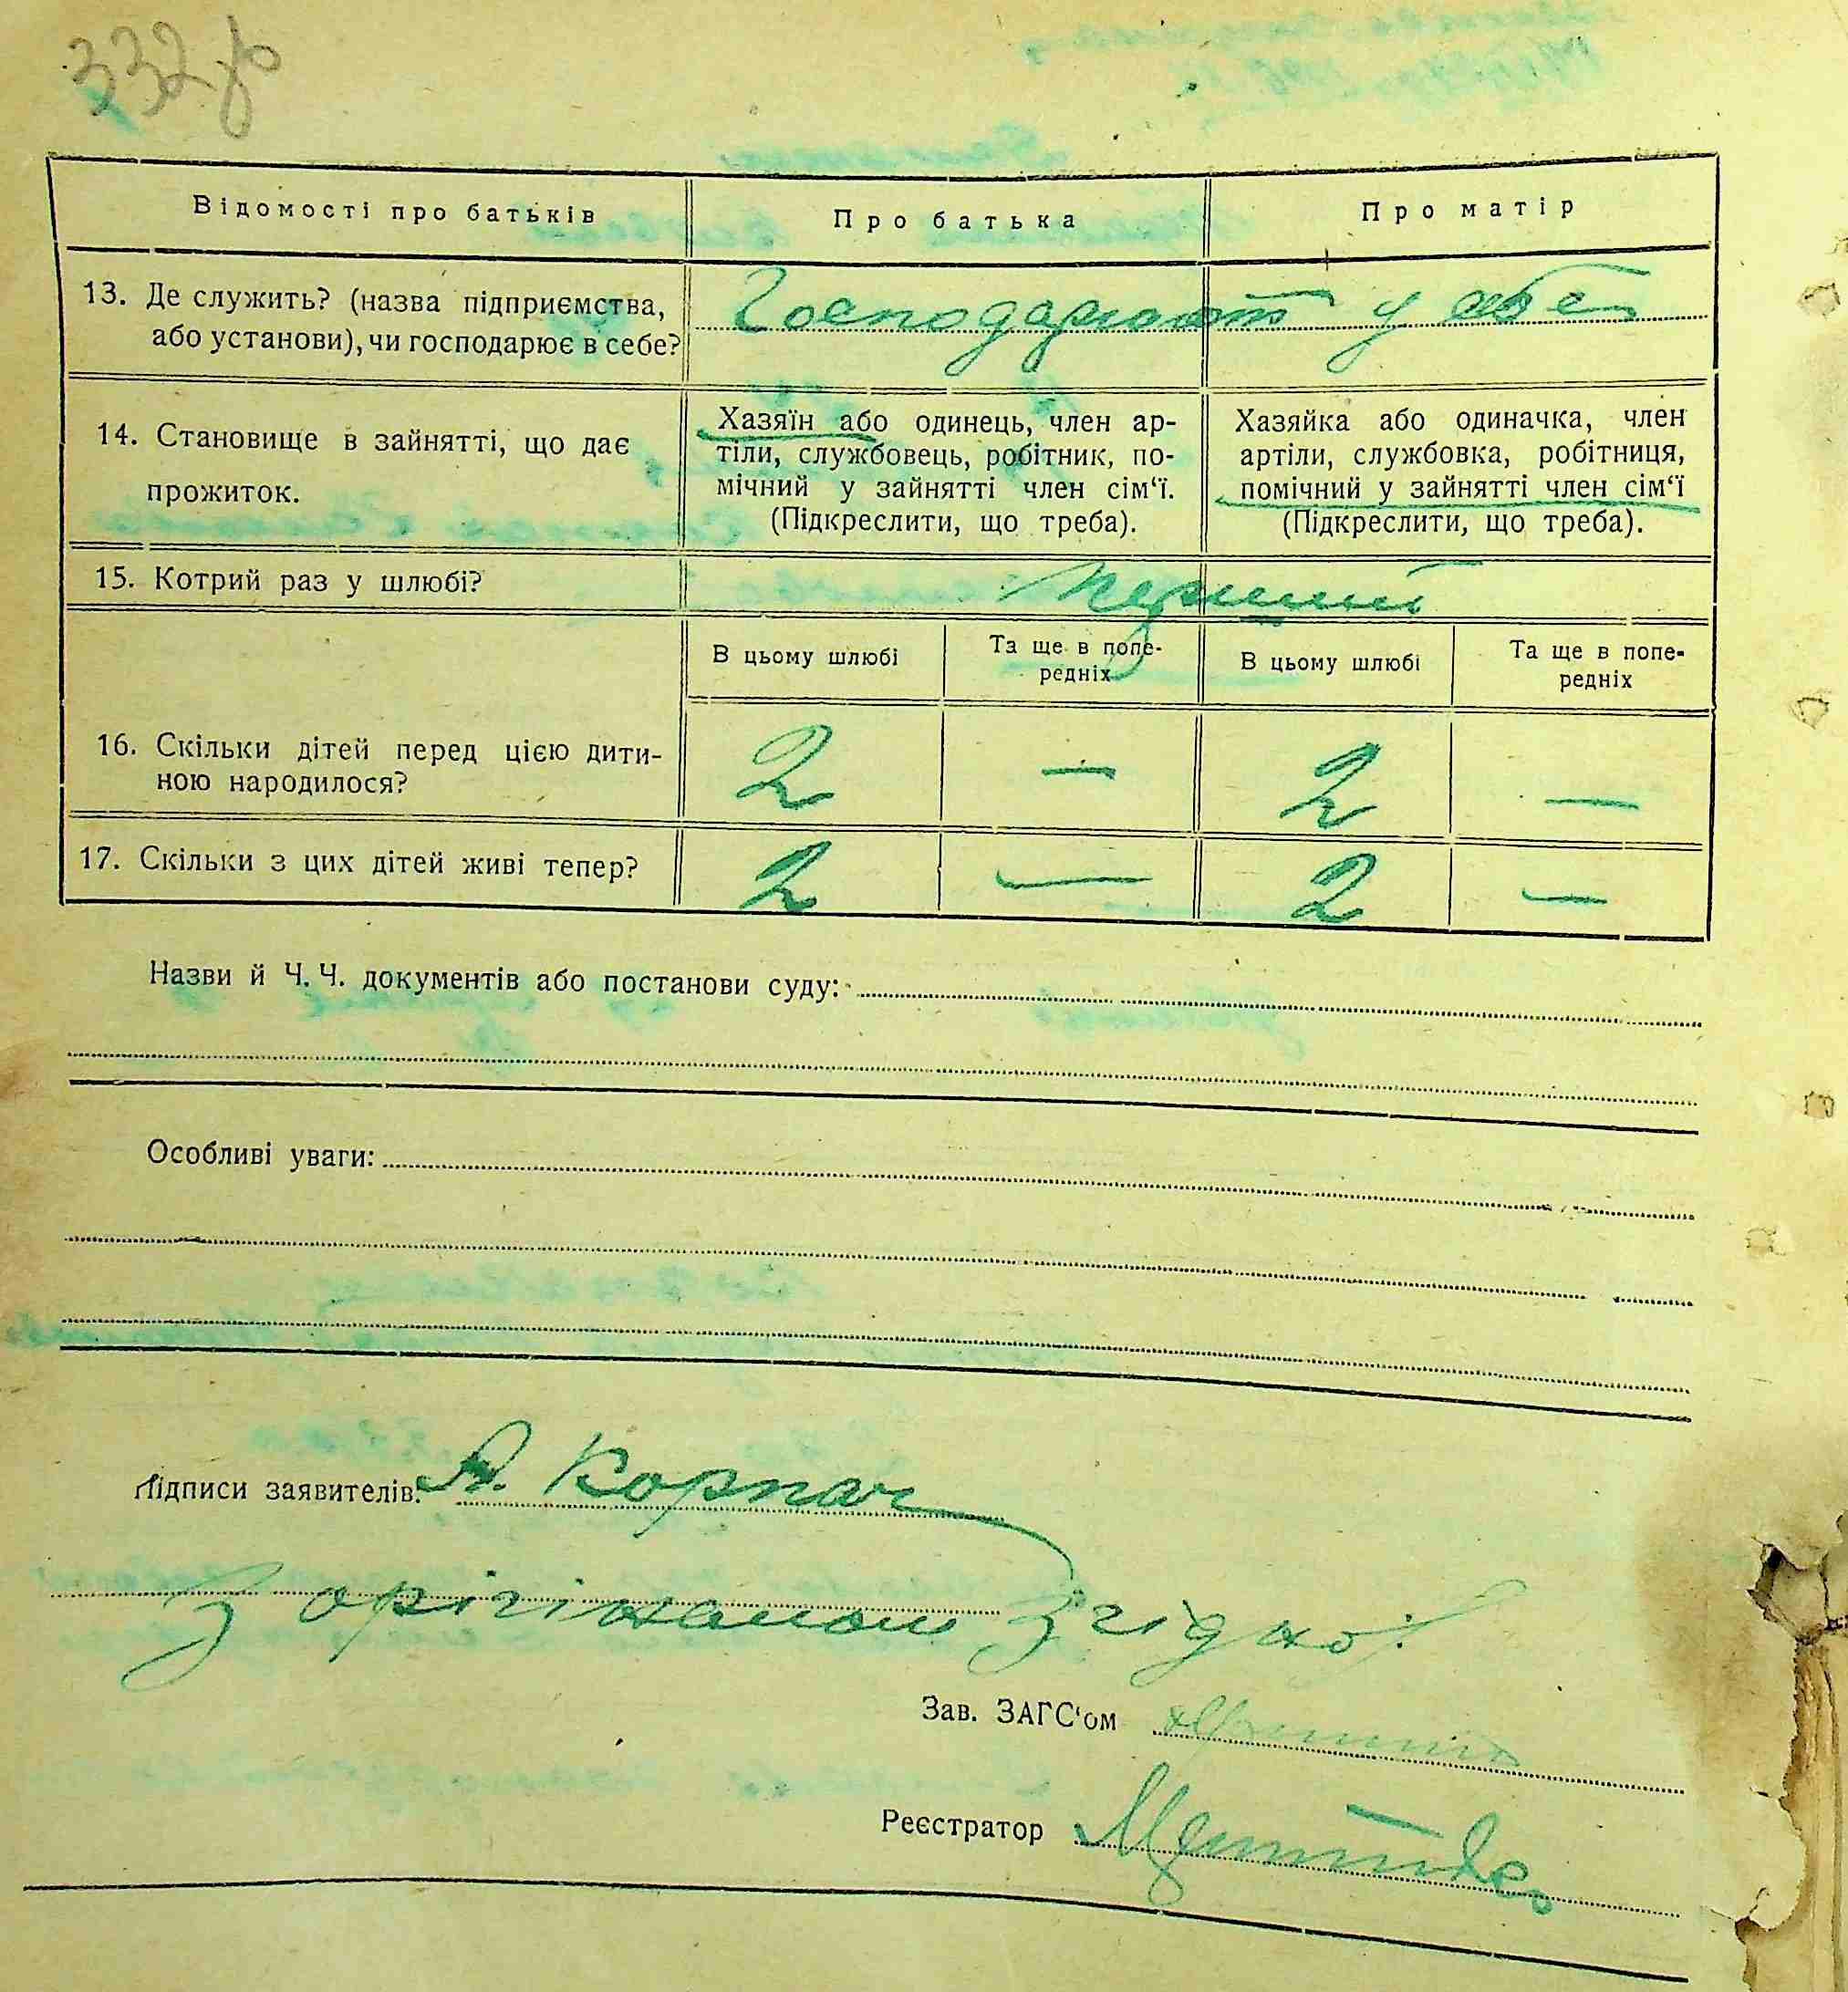 332
Відомості про батьків
Про батька
Про матір
13. Де служить? (назва підприємства,
або установи), чи господарює в себе?
Господарюють у себе
14. Становище в зайнятті, що дає
прожиток.
Хазяїн або одинець, член ар-
тіли, службовець, робітник, по-
мічний у зайнятті член сім'ї.
(Підкреслити, що треба).
Хазяйка або одиначка, член
артіли, службовка, робітниця,
помічний у зайнятті член сім'ї
(Підкреслити, що треба).
15. Котрий раз у шлюбі?
перший
В цьому шлюбі
Та ще в попе-
редніх
В цьому шлюбі
Та ще в попе-
редніх
16. Скільки дітей перед цією дити-
ною народилося?
2 — 2 —
17. Скільки з цих дітей живі тепер?
2 — 2 —
Назви й Ч. Ч. документів або постанови суду:
Особливі уваги:
Підписи заявителів: Корпач
З оригіналом згідно:
Зав. ЗАГС'ом
Реєстратор